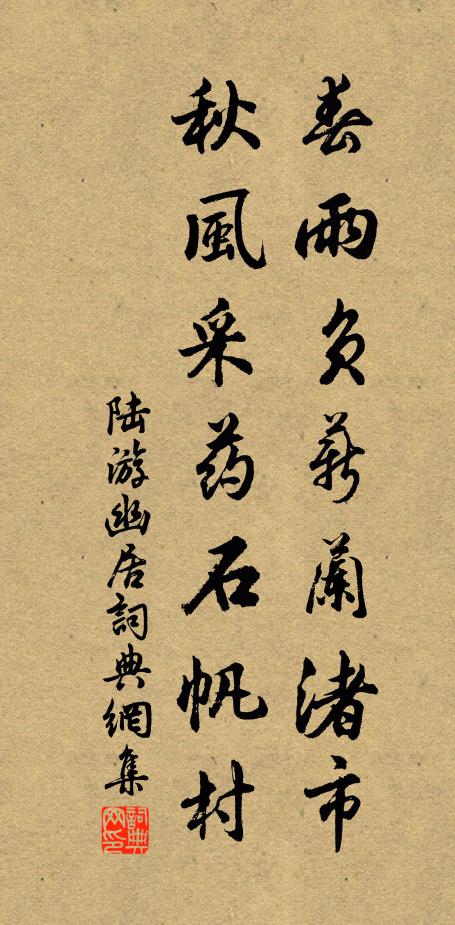 春雨负薪蘭渚市
秋風采药石帆村
陆游幽居詞典網集
詞典网印